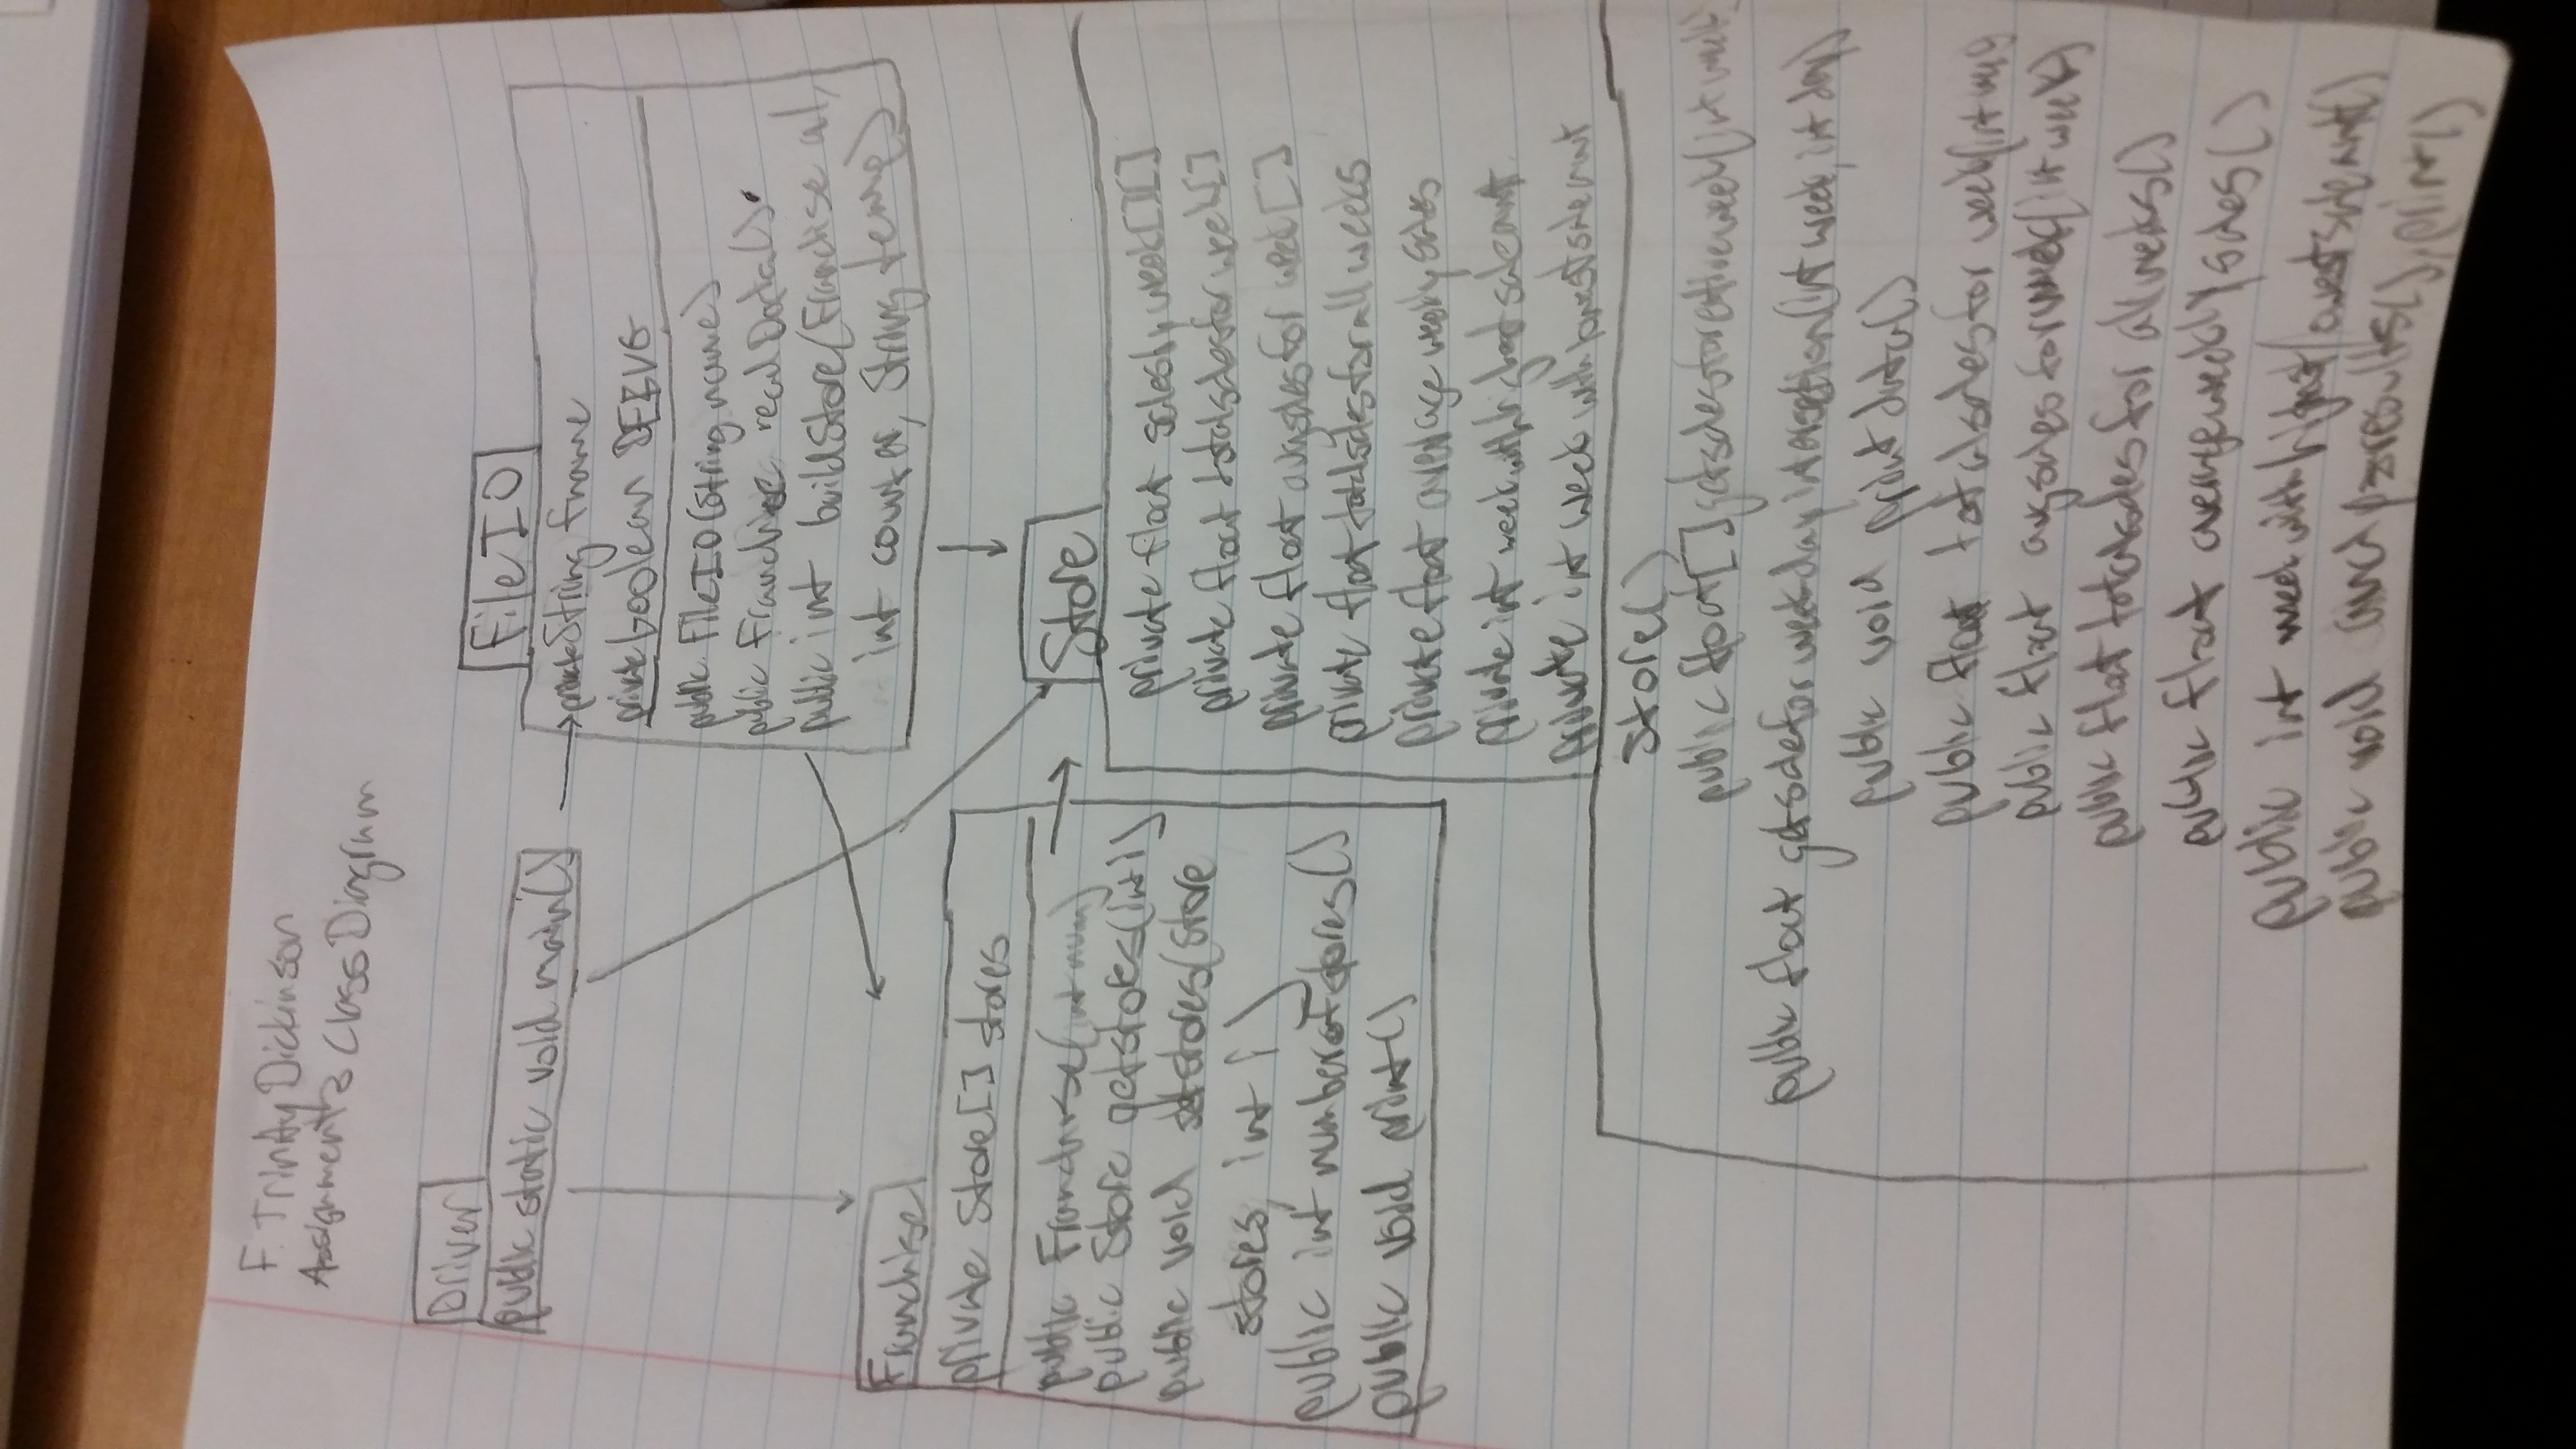 F. Trinity Dickinson
Assignment 3 Class Diagram
Driver
public static void main()
FileIO
private String fname
private boolean DEBUG
public FileIO(String name)
public Franchise readData()
public int buildStore(Franchise a1,
int counter, String temp)
Franchise
private Store[] stores
public Franchise(int num)
public Store getstores(int i)
public void setstores(Store
stores, int i)
public int numberofstores()
public void print()
Store
private float salesbyweek[][]
private float totalsalesforweek[]
private float avgsalesforweek[]
private float totalsalesforallweeks
private float averageweeklysales
private int weekwithhighestsaleamt
private int weekwithlowestsaleamt
Store()
public float[] getsalesforentireweek(int week)
public float getsaleforweekdayintersection(int week, int day)
public void printdata()
public float totalsalesforweek(int
public float avgsalesforweek(int week)
public float totalsalesforallweeks()
public float averageweeklysales()
public int weekwithhighest/lowestsaleamt()
public void results(), print()